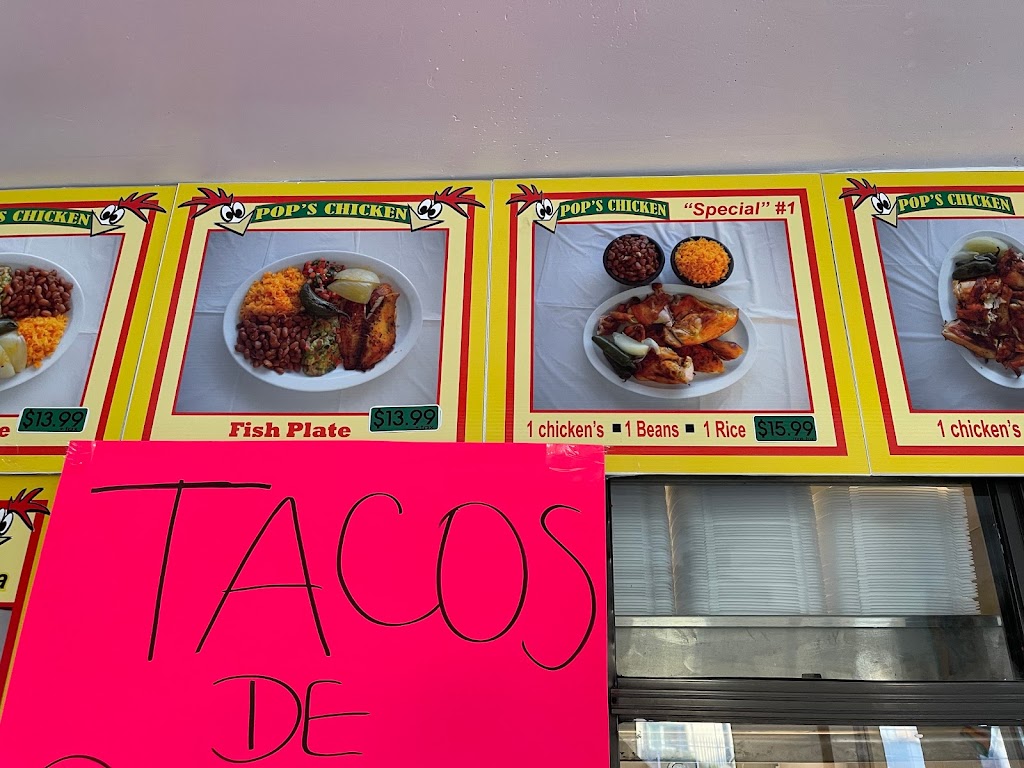 S CHICKEN
e $13.99
POP'S CHICKEN
Fish Plate $13.99
POP'S CHICKEN "Special" #1
1 chicken's ▪ 1 Beans ▪ 1 Rice $15.99
POP'S CHICKEN
1 chicken's
a
TACOS
DE